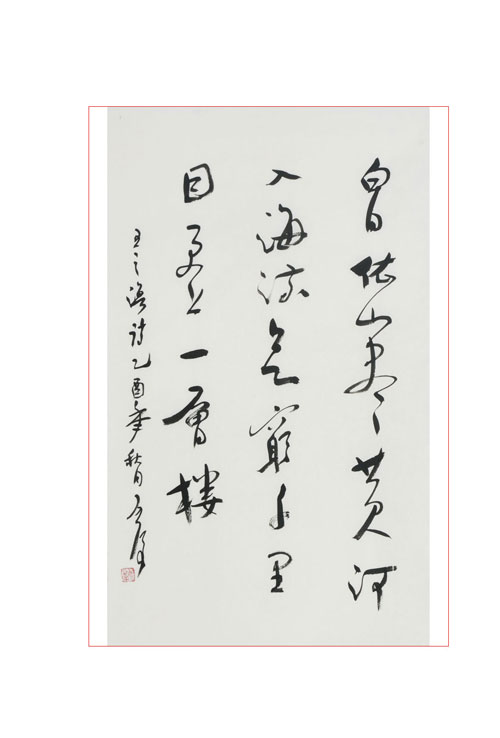 白日依山尽黄河
入海流欲穷千里
目更上一层楼
王之涣诗乙酉年秋月